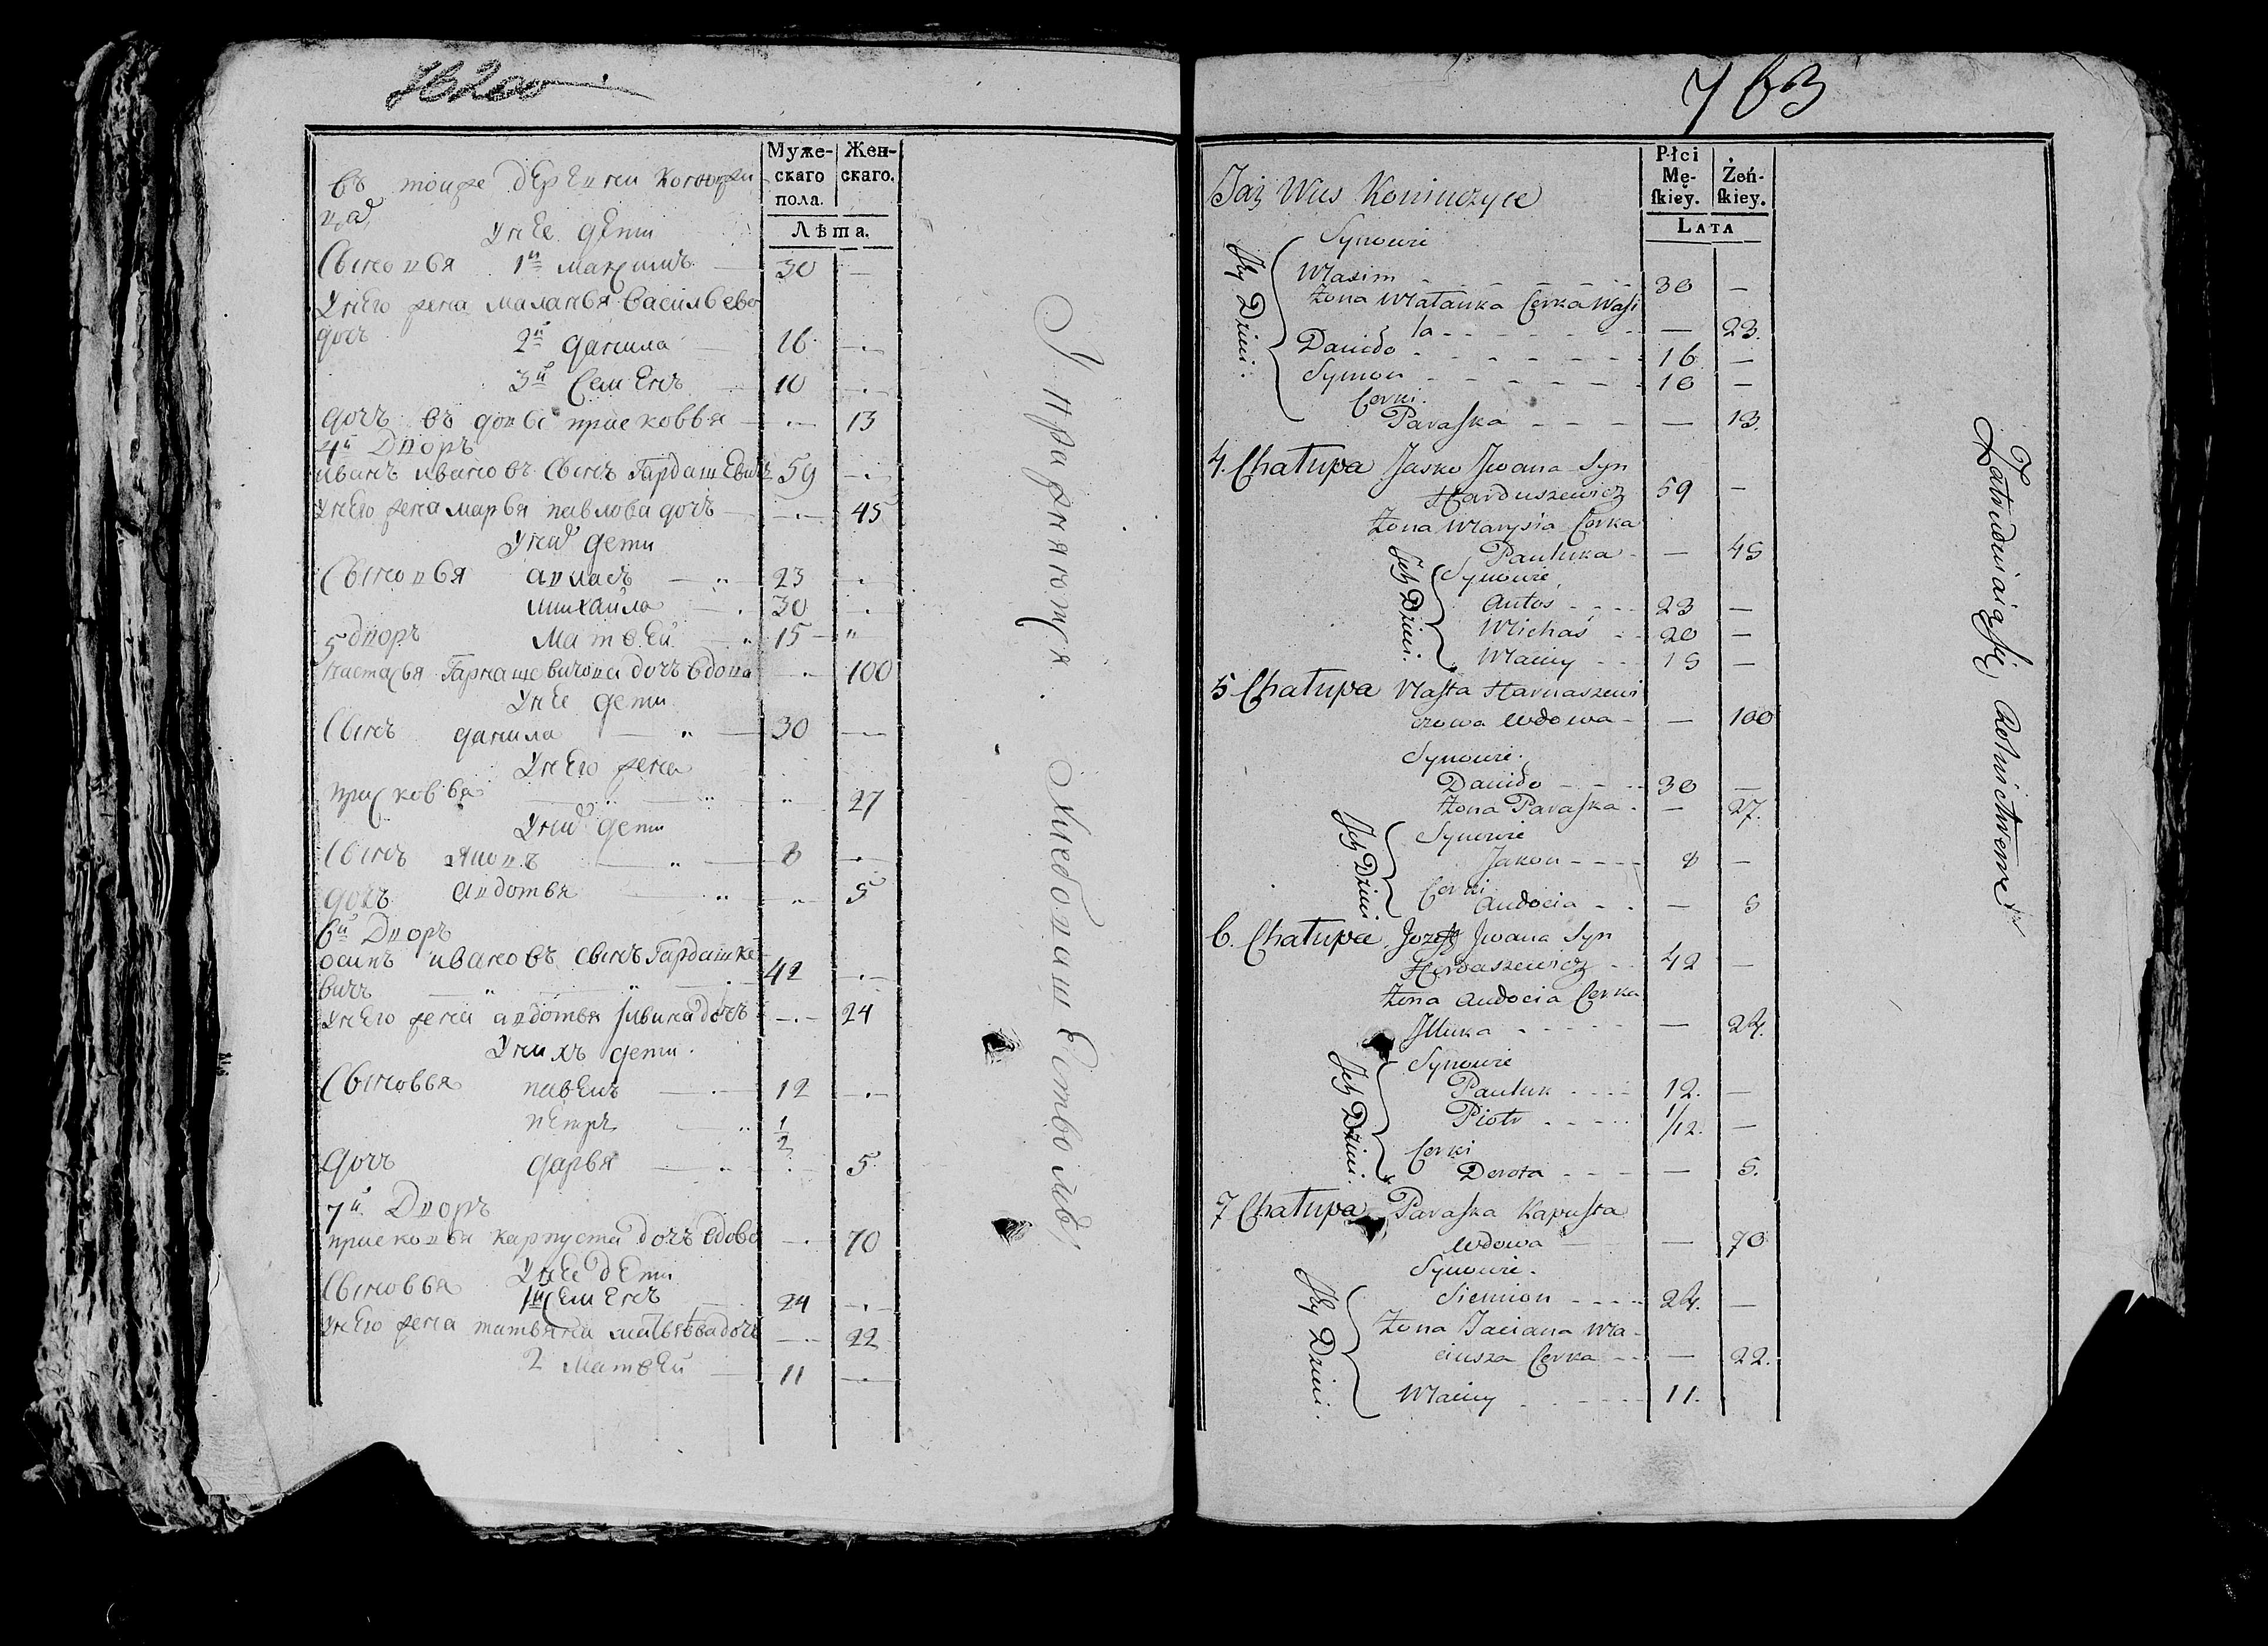 762 об
Муже-скаго пола.
Жен-скаго.
Лѣта.
въ тойже деревни
у нее дети
Сыновья 1й Максимъ 30 —
У него жена Маланья Васильева
дочь
2й Данила 16 —
3й Семенъ 10 —
дочь въ девкахъ Присковья — 13
4й Дворъ
Иванъ Ивановъ сынъ Гардашевичъ 59 —
У него жена Марья Павлова дочь — 45
У них дети
Сыновья 23 —
Михайла 30 —
5 Дворъ Матвей 15 "
Настасья Гарнашевичова дочь вдова — 100
У нее дети
Сынъ Данила 30 —
У него жена
Присковья " 27
У них дети
Сынъ Яковъ 8 —
дочь Авдотья " 5
6й Дворъ
Осипъ Ивановъ сынъ Гардашке
вичъ 42 —
У него жена Авдотья дочь — 24
У нихъ дети.
Сыновья Павелъ 12 —
Петръ 1/2
дочь Дарья 5
7й Дворъ
Присковья Карпуста дочь вдова — 70
У нее дети
Сыновья 1й Семенъ 24 —
У него жена Татьяна Матвѣева дочь — 22
2 Матвей 11 —
Упражняются. Хлебопашествомъ
763
Płci Mę-skiey.
Żeń-skiey.
LATA
Taż Wieś Koniuczyce
Synowie
Jey Dzieci:
Maxim 30 —
Żona Małanka Corka Wasi
la — 23.
Daniło 16 —
Symon 10 —
Corki.
Paraska — 13.
4. Chałupa Jasko Jwana Syn
Harduszewicz 59 —
Żona Marysia Corka
Pauluka — 45
Jch Dzieci.
Synowie
Antoś 23 —
Michaś 20 —
Maciey 15 —
5 Chałupa Nasta Harnaszewi
czowa Wdowa — 100
Synowie.
Daniło 30 —
Żona Paraska — 27.
Jch Dzieci
Synowie
Jakow 8 —
Corki
Audocia — 5
6. Chałupa Jozef Jwana Syn
Hordaszewicz 42 —
Żona Audocia Corka
— 24.
Jch Dzieci.
Synowie
Pauluk 12. —
Piotr 1/12. —
Corki
Dorota — 5.
7 Chałupa Paraska Kapusta
Wdowa — 70
Synowie.
Jey Dzieci.
Siemion 24. —
Żona Taciana Ma-
ciusza Corka — 22.
Maciey 11.
Zatrudniaią się Rolnictwem